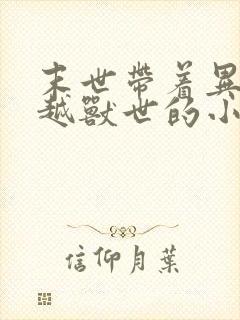 末世帶着異
越獸世的小
信仰月葉